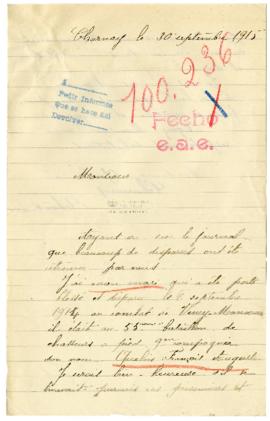 Charnay le 30 septembre 1915
à
Pedir Informes
Que se hace Así
Devolver
100.236
Hecho
e.a.e.
Monsieur
Ayant vu sur le journal
que beaucoup de disparus ont été
par vous
J'ai mon mari qui a été porté
blessé et disparu le septembre
1914 au combat de
il était au 55ème bataillon de
chasseurs à pied compagnie
son nom François Auguste
Je serait bien heureuse si
et